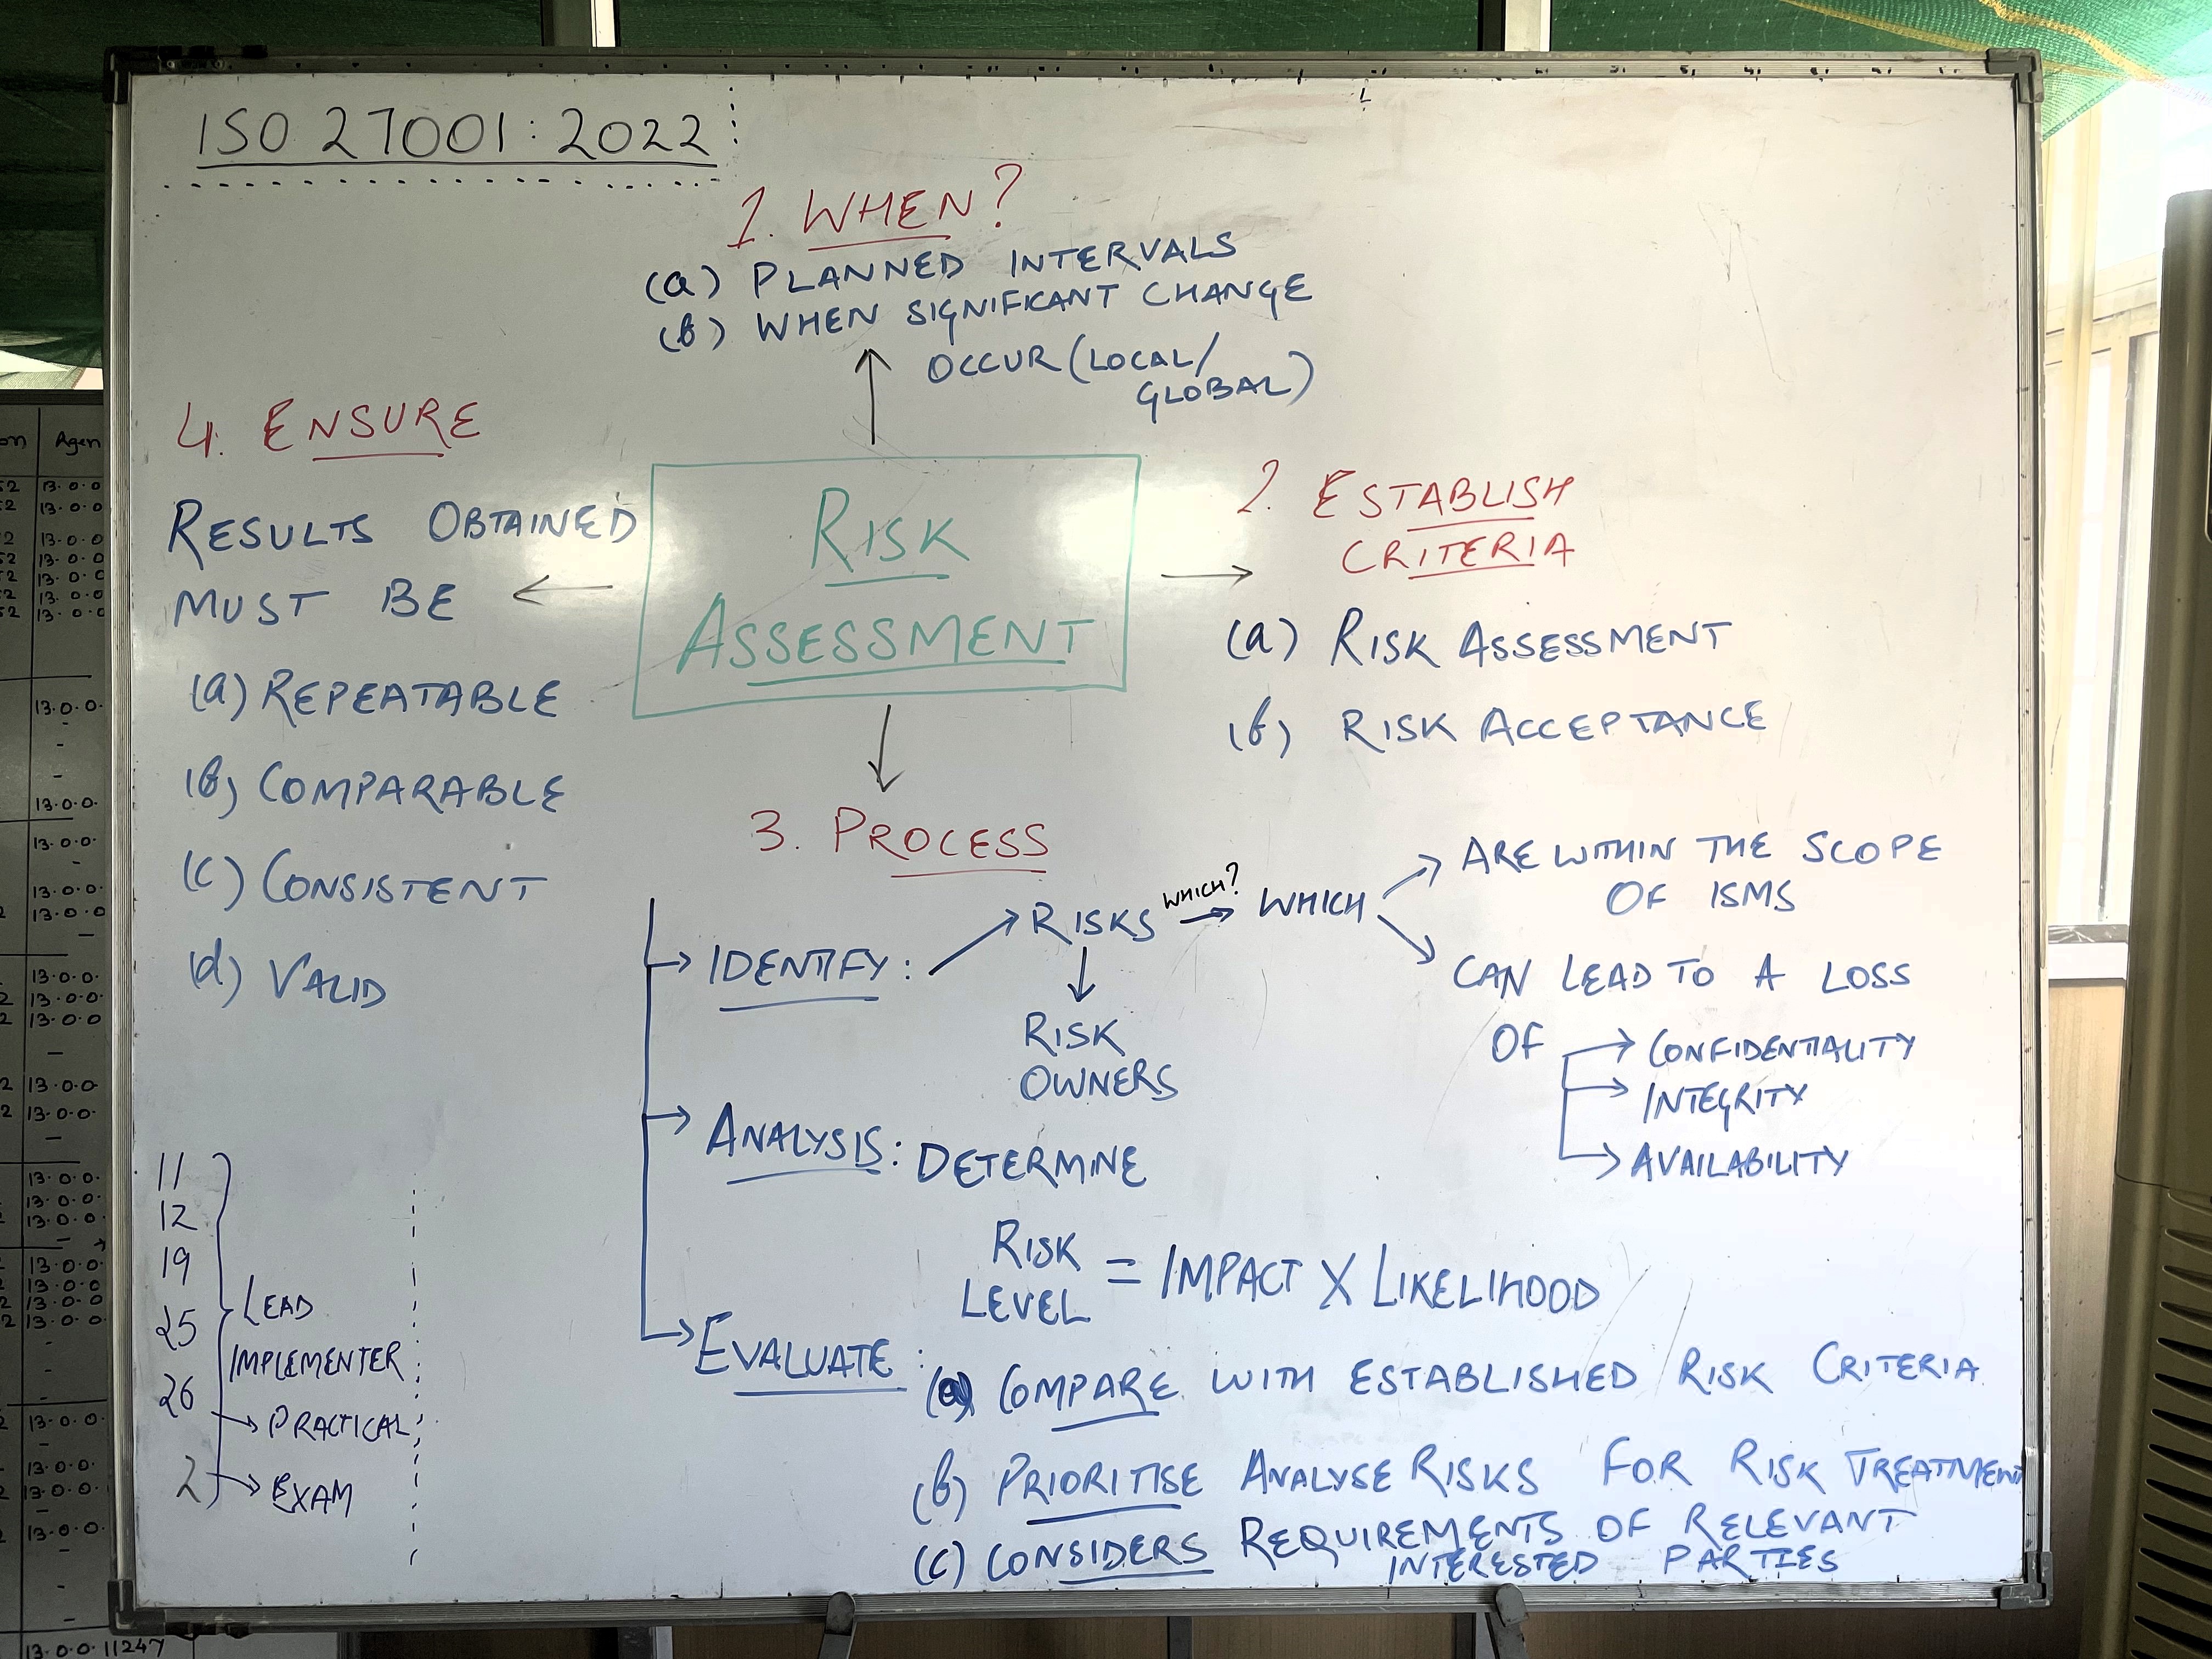 ISO 27001:2022
1. WHEN?
(a) PLANNED INTERVALS
(b) WHEN SIGNIFICANT CHANGE
OCCUR (LOCAL/
GLOBAL)
RISK
ASSESSMENT
2. ESTABLISH
CRITERIA
(a) RISK ASSESSMENT
(b) RISK ACCEPTANCE
3. PROCESS
IDENTIFY: RISKS WHICH? WHICH
ARE WITHIN THE SCOPE
OF ISMS
CAN LEAD TO A LOSS
OF CONFIDENTIALITY
INTEGRITY
AVAILABILITY
RISK
OWNERS
ANALYSIS: DETERMINE
RISK
LEVEL = IMPACT X LIKELIHOOD
EVALUATE:
(a) COMPARE WITH ESTABLISHED RISK CRITERIA
(b) PRIORITISE ANALYSE RISKS FOR RISK TREATMENT
(c) CONSIDERS REQUIREMENTS OF RELEVANT
INTERESTED PARTIES
4. ENSURE
RESULTS OBTAINED
MUST BE
(a) REPEATABLE
(b) COMPARABLE
(c) CONSISTENT
(d) VALID
11
12
19
25
26
2
LEAD
IMPLEMENTER
PRACTICAL
EXAM
Agen
13.0.0
13.0.0
13.0.0
13.0.0
13.0.0
13.0.0
13.0.0
13.0.0.
13.0.0.
13.0.0.
13.0.0.
13.0.0.
13.0.0.
13.0.0.
13.0.0
13.0.0
13.0.0.
13.0.0.
13.0.0.
13.0.0.
13.0.0.
13.0.0
13.0.0
13.0.0
13.0.0.
13.0.0.
13.0.0.
13.0.0.
13.0.0.
13.0.0.11247